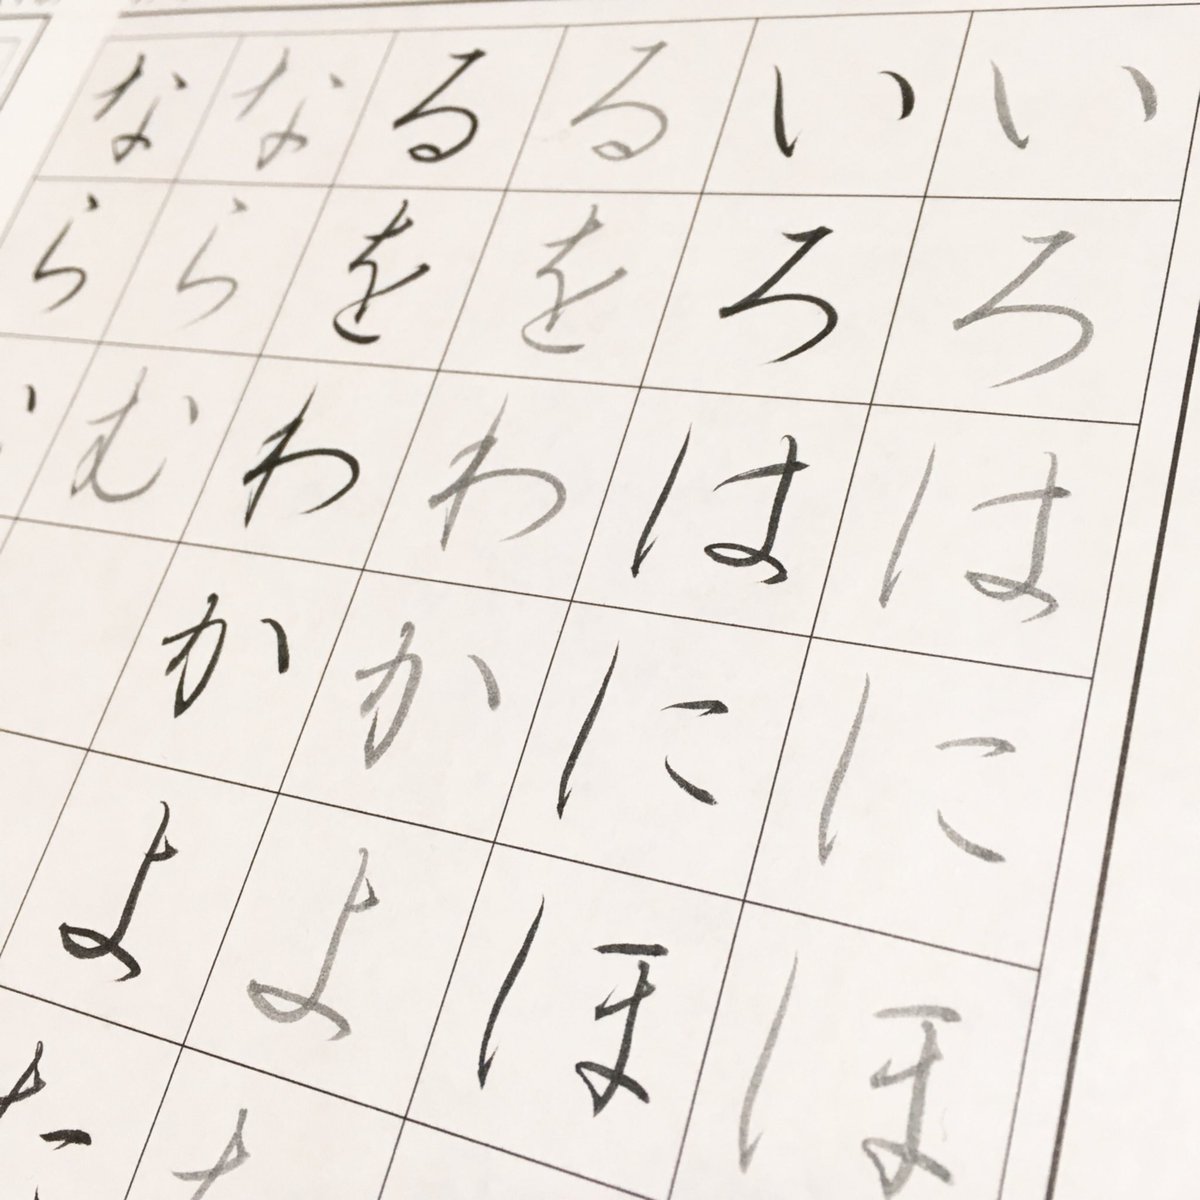 いろはにほ
いろはにほ
るをわかよ
るをわかよた
ならむ
なら